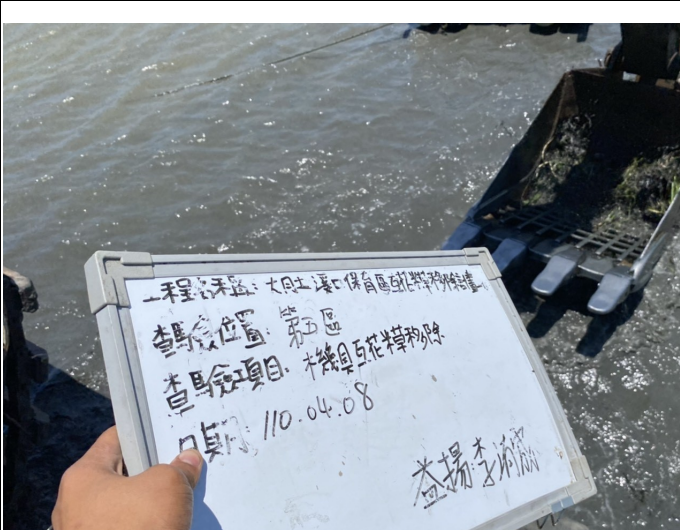 工程名稱: 大肚溪口保育區互花米草移除
查驗位置: 第五區
查驗項目: 機具互花米草移除
日期: 110.04.08
益揚: 李